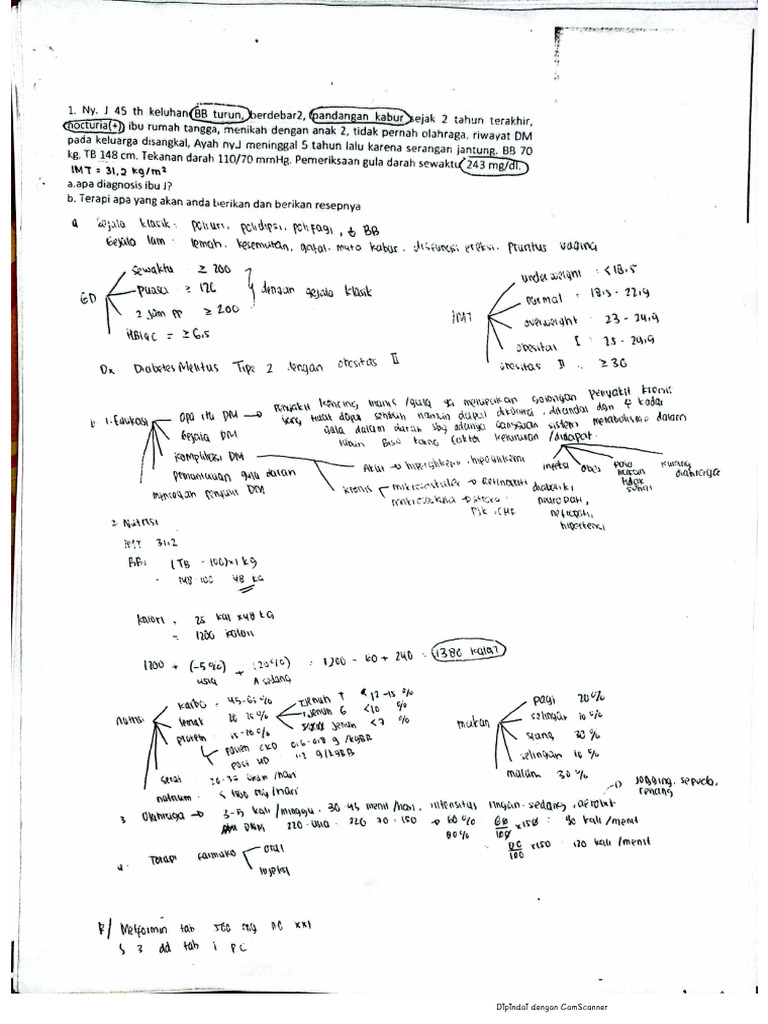 1. Ny. J 45 th keluhan BB turun, berdebar2, pandangan kabur sejak 2 tahun terakhir,
nocturia(+) ibu rumah tangga, menikah dengan anak 2, tidak pernah olahraga, riwayat DM
pada keluarga disangkal, Ayah nyJ meninggal 5 tahun lalu karena serangan jantung. BB 70
kg, TB 148 cm. Tekanan darah 110/70 mmHg. Pemeriksaan gula darah sewaktu 243 mg/dl.
IMT = 31,2 kg/m²
a.apa diagnosis ibu J?
b. Terapi apa yang akan anda berikan dan berikan resepnya
a Gejala klasik : poliuri, polidipsi, polifagi, ↓ BB
Gejala lain : lemah, kesemutan, gatal, mata kabur, disfungsi ereksi, pruritus vagina
GD
sewaktu ≥ 200
puasa ≥ 126
2 jam pp ≥ 200
HBA1C = ≥ 6,5
dengan gejala klasik
IMT
underweight : < 18,5
normal : 18,5 - 22,9
overweight : 23 - 24,9
obesitas I : 25 - 29,9
obesitas II : ≥ 30
Dx Diabetes Melitus Tipe 2 dengan obesitas II
b 1. Edukasi
apa itu DM → penyakit kencing manis / gula yg merupakan golongan penyakit kronis
yang tidak dapat sembuh namun dapat dikontrol, ditandai dgn ↑ kadar
gula dalam darah sbg adanya gangguan sistem metabolisme dalam
tubuh bisa karna faktor keturunan / didapat
Gejala DM
komplikasi DM
pemantauan gula darah
mencegah penyulit DM
Akut → hiperglikemi, hipoglikemi
kronis
mikrovaskuler → Retinopati diabetik,
neuropati,
nefropati,
hipertensi
makrovaskular → stroke,
PJK, CHF
infeksi
obes
pola makan tidak sehat
kurang olahraga
2. Nutrisi
IMT 31,2
BBI (TB - 100) x 1 kg
148 - 100 48 kg
kalori = 25 kal x 48 kg
= 1200 kalori
1200 + (-5%) + (20%) = 1200 - 60 + 240 = 1380 kalori
usia A sedang
Nutrisi
karbo = 45-65 %
lemak 20 25 %
protein
pasien CKD 0,6-0,8 g /kgBB
post HD 1,2 g/kgBB
jenuh T 12-15 %
jenuh G < 10 %
jenuh < 7 %
serat 20-35 gram /hari
natrium ≤ 1500 mg /hari
makan
pagi 20 %
selingan 10 %
siang 30 %
selingan 10 %
malam 30 %
3 Olahraga → 3-5 kali /minggu, 30 45 menit /hari, intensitas ringan-sedang, aerobik
→ Jogging, sepeda, renang
DNM 220 - usia = 220 70 = 150 → 60 % 60/100 x 150 = 90 kali /menit
80 % 80/100 x 150 120 kali /menit
4. Terapi farmako
oral
injeksi
R/ Metformin tab 500 mg no xxi
S 3 dd tab i PC
Dipindai dengan CamScanner